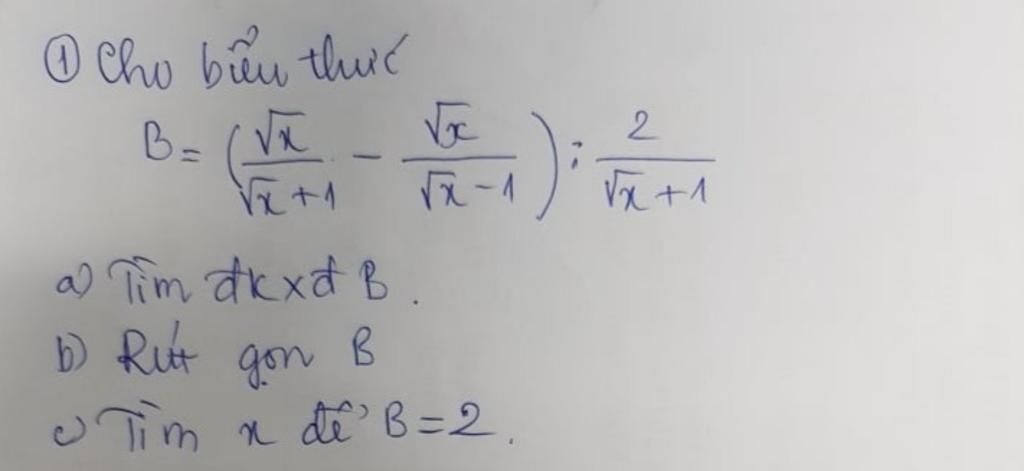 ① Cho biểu thức
B = (√x / (√x + 1) - √x / (√x - 1)) : 2 / (√x + 1)
a) Tìm đkxđ B.
b) Rút gọn B
c) Tìm x để B = 2.